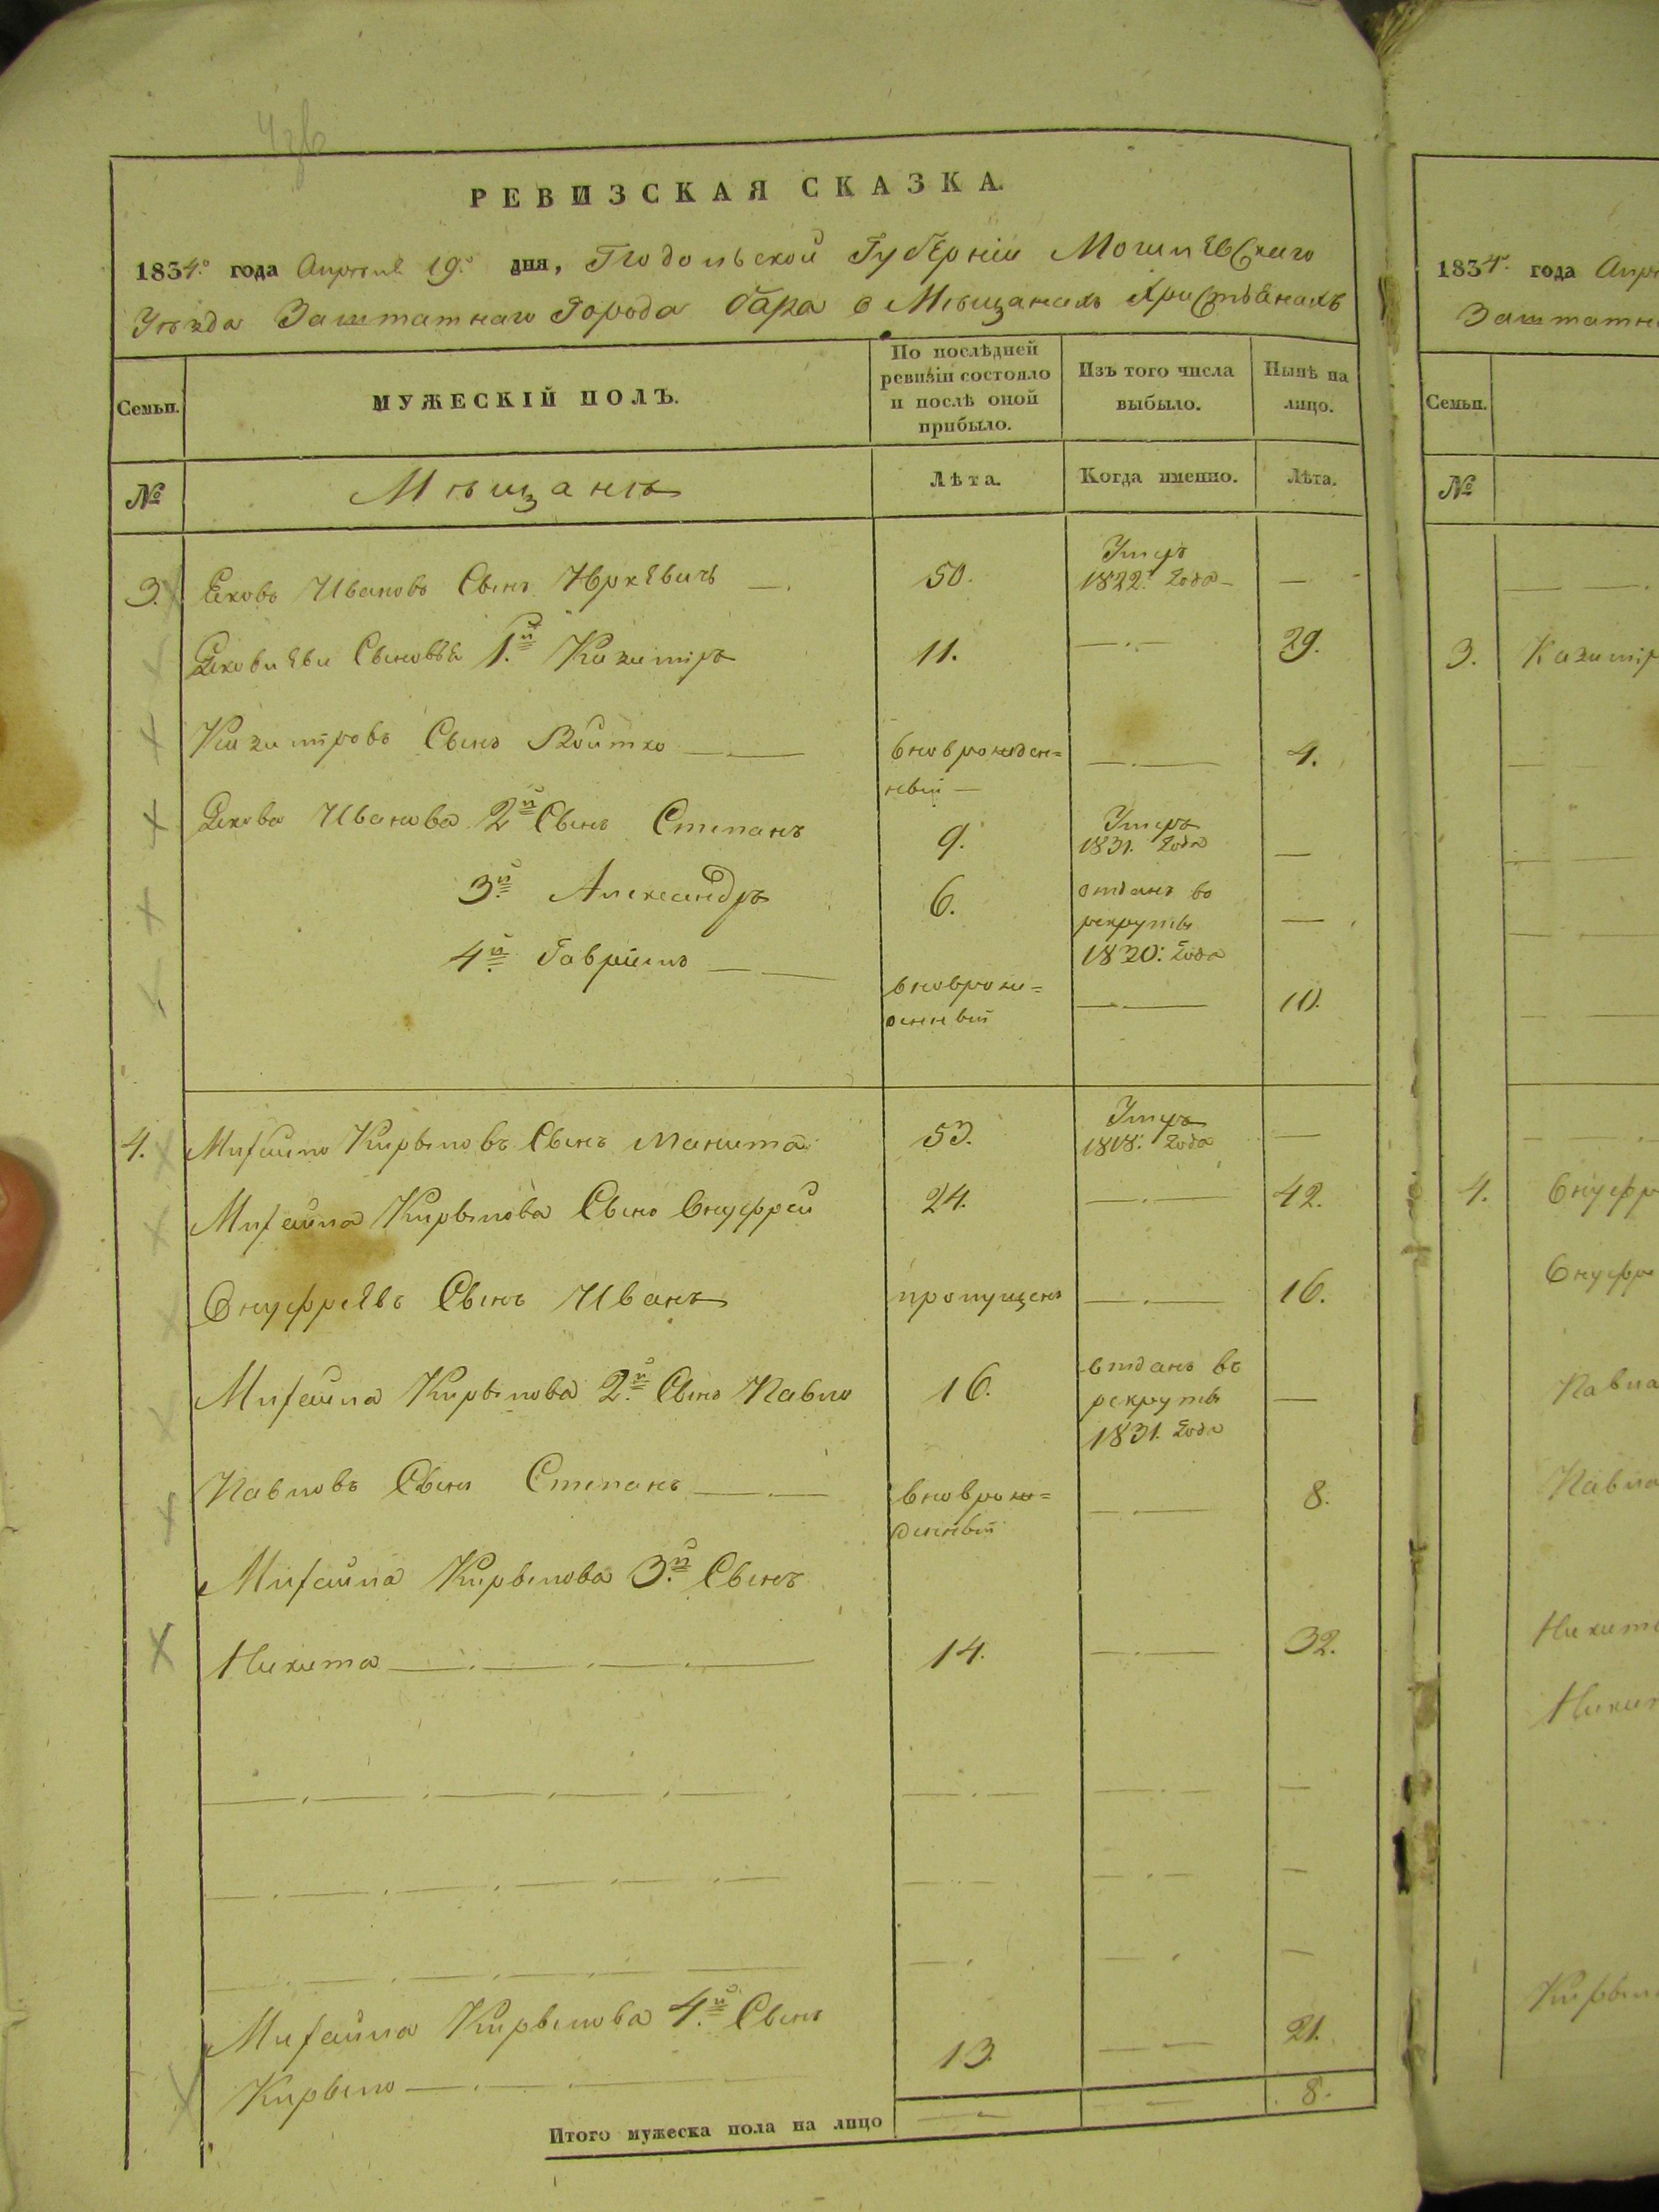 РЕВИЗСКАЯ СКАЗКА.
1834го года Апреля 19го дня, Подольской Губерніи Могилевскаго
Уѣзда Заштатнаго Города Бара о Мѣщанахъ Христіанахъ
Семьи.
МУЖЕСКІЙ ПОЛЪ.
По послѣдней ревизіи состояло и послѣ оной прибыло.
Изъ того числа выбыло.
Нынѣ на лицо.
№
Мѣщанъ
Лѣта.
Когда именно.
Лѣта.
3. Яковъ Ивановъ Сынъ 50. Умеръ 1822. года —
Яковлеви Сыновья 1.й Казимiръ 11. — 29.
Казимiровъ Сынъ Войтко вноврожден=ный — — 4.
Якова Иванова 2й Сынъ Степанъ 9. Умеръ 1831. года —
3.й Александръ 6. отданъ во рекруты 1830. года —
4.й Гаврiилъ вноврож=денный — 10.
4. Михайло Кирыловъ Сынъ 53. Умеръ 1818. года —
Михайла Кирылова Сынъ Онуфрей 24. — 42.
Онуфреевъ Сынъ Иванъ пропущенъ — 16.
Михайла Кирылова 2.й Сынъ Павло 16. отданъ въ рекруты 1831. года —
Павловъ Сынъ Степанъ вноврож=денный — 8.
Михайла Кирылова 3.й Сынъ
Никита 14. — 32.
Михайла Кирылова 4.й Сынъ
Кирыло 13. — 21.
Итого мужеска пола на лицо — — 8.
1834. года
Семьи.
№
3. Казимiр
4. Онуфр
Онуфре
Павла
Павла
Никит
Кирыл